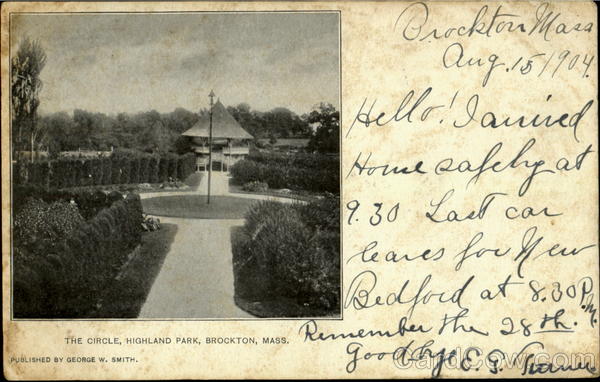 Brockton Mass
Aug. 15/1904.
Hello! I arrived
Home safely at
9.30 Last car
leaves for New
Bedford at 8.30 P.M.
Remember the 28th.
Goodbye E. G.
THE CIRCLE, HIGHLAND PARK, BROCKTON, MASS.
PUBLISHED BY GEORGE W. SMITH.
CardCow.com